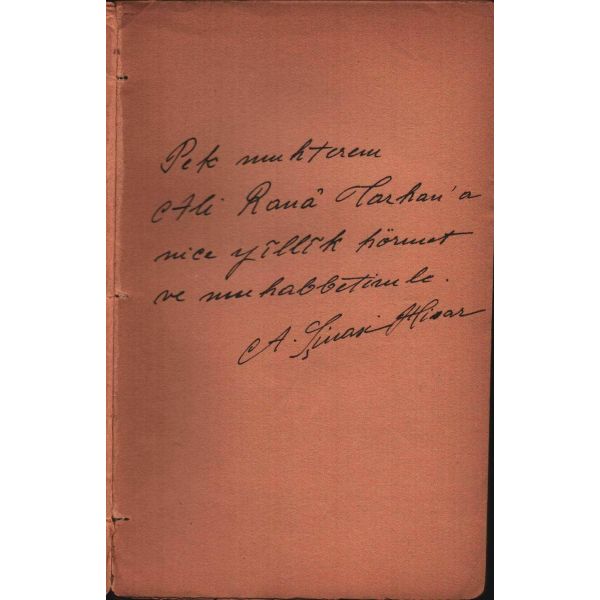 Pek muhterem
Ali Ranâ Tarhan'a
nice yıllık hörmet
ve muhabbetimle.
A. Şinasi Hisar